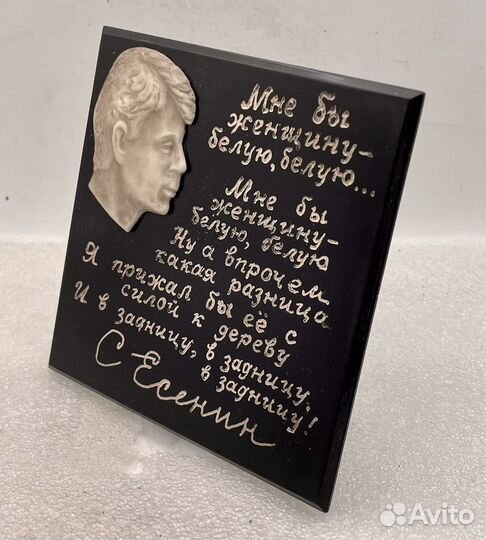 Мне бы
женщину–
белую, белую...
Мне бы
женщину–
белую, белую
Ну а впрочем
какая разница
Я прижал бы её с
силой к дереву
И в задницу, в задницу,
в задницу!
С Есенин
Avito